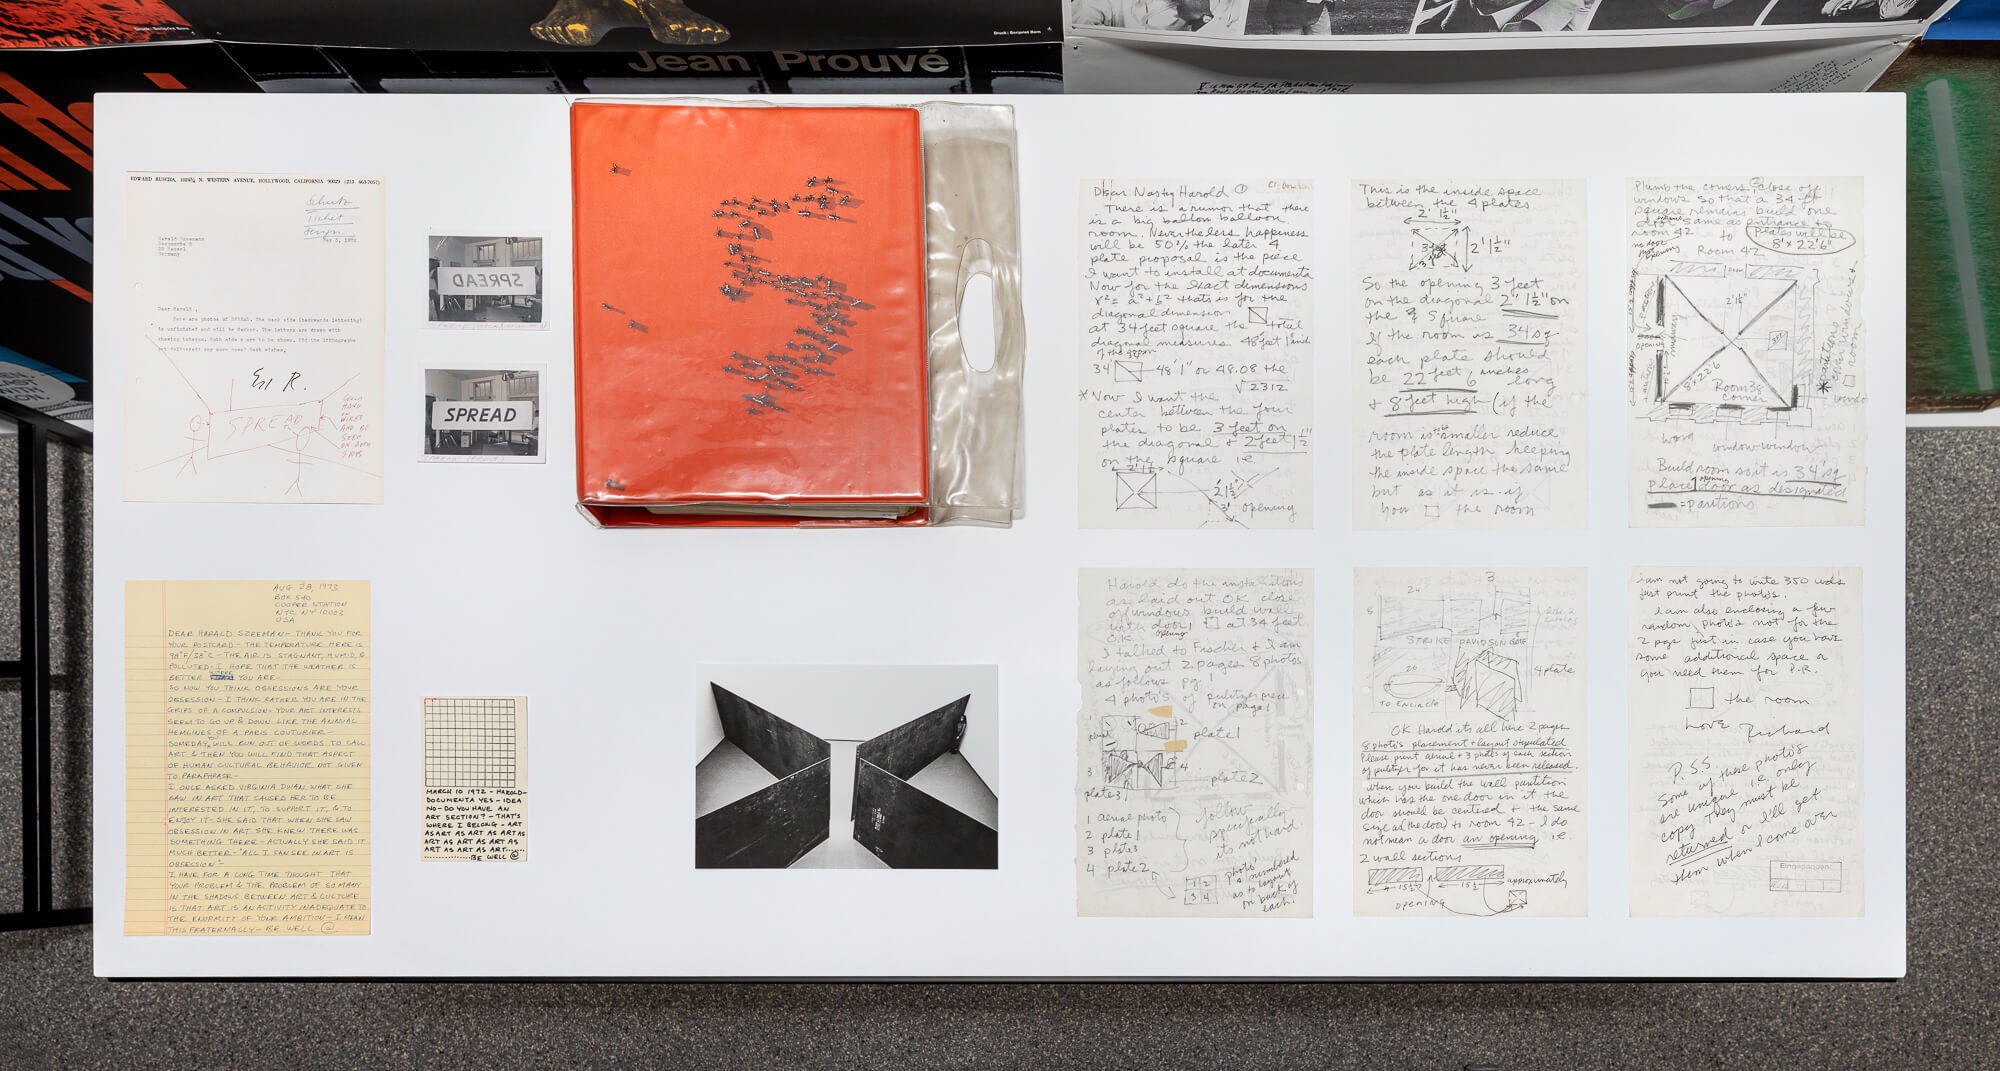 Druck: Seriprint Bern
Druck: Seriprint Bern
Jean Prouvé
EDWARD RUSCHA, 1024¾ N. WESTERN AVENUE, HOLLYWOOD, CALIFORNIA 90029 (213 463-7057)
May 5, 1972
Harald Szeemann
Germany
Dear Harald,
Here are photos of SPREAD. The back side (backwards lettering)
is unfinished and will be darker. The letters are drawn with
chewing tobacco. Both sides are to be shown. Did the lithographs
get delivered? Any more news? Best wishes,
Ed R.
SPREAD
COULD
HANG
ON
WIRES
AND BE
SEEN
ON BOTH
SIDES
SPREAD
SPREAD
AUG 28, 1973
BOX 540
COOPER STATION
NYC NY 10003
USA
DEAR HARALD SZEEMAN – THANK YOU FOR
YOUR POSTCARD – THE TEMPERATURE HERE IS
98°F/38°C – THE AIR IS STAGNANT, HUMID, &
POLLUTED – I HOPE THAT THE WEATHER IS
BETTER WHERE YOU ARE –
SO NOW YOU THINK OBSESSIONS ARE YOUR
OBSESSION – I THINK RATHER YOU ARE IN THE
GRIPS OF A COMPULSION – YOUR ART INTERESTS
SEEM TO GO UP & DOWN LIKE THE ANNUAL
HEMLINES OF A PARIS COUTURIER –
SOMEDAY YOU WILL RUN OUT OF WORDS TO CALL
ART & THEN YOU WILL FIND THAT ASPECT
OF HUMAN CULTURAL BEHAVIOR NOT GIVEN
TO PARAPHRASE –
I ONCE ASKED VIRGINIA DWAN WHAT SHE
SAW IN ART THAT CAUSED HER TO BE
INTERESTED IN IT, TO SUPPORT IT, & TO
ENJOY IT – SHE SAID THAT WHEN SHE SAW
OBSESSION IN ART SHE KNEW THERE WAS
SOMETHING THERE – ACTUALLY SHE SAID IT
MUCH BETTER – "ALL I CAN SEE IN ART IS
OBSESSION" –
I HAVE FOR A LONG TIME THOUGHT THAT
YOUR PROBLEM & THE PROBLEM OF SO MANY
IN THE SHADOWS BETWEEN ART & CULTURE
IS THAT ART IS AN ACTIVITY INADEQUATE TO
THE ENORMITY OF YOUR AMBITION – I MEAN
THIS FRATERNALLY – BE WELL
MARCH 10 1972 – HAROLD –
DOCUMENTA YES – IDEA
NO – DO YOU HAVE AN
ART SECTION? – THAT'S
WHERE I BELONG – ART
AS ART AS ART AS ART AS
ART AS ART AS ART AS
ART AS ART AS ART.....
BE WELL
Dear Nasty Harold 1
There is a rumor that there
is a big ballon balloon
room. Nevertheless happiness
will be 50% the later 4
plate proposal is the piece
I want to install at documenta
Now for the exact dimensions
thats is for the
diagonal dimension
at 34 feet square the total
diagonal measures 48 feet 1 inch
of the room
34' 48' 1" or 48.08 the
√2312
* Now I want the
center between the four
plates to be 3 feet on
the diagonal & 2 feet 1½"
on the square i.e.
2' 1½"
2' 1½"
3' opening
This is the inside space
between the 4 plates
2' 1½"
2' 1½"
So the opening 3 feet
on the diagonal 2' 1½" on
the Square
If the room is 34' sq
each plate should
be 22 feet 6 inches long
& 8 feet high (if the
room is smaller reduce
the plate length keeping
the inside space the same
but as it is if
you the room
Plumb the corners, close off
windows so that a 34 ft
square remains build one
door same as entrance to
room 42 to
Plates will be
8' x 22'6"
Room 42
2' 1½"
8' x 22'6
Room 38
corner
partitions
window window
Build room so it is 34' sq
place 1 door as designated
opening
= partitions
Harold do the installations
as laid out OK close
off windows build wall
with door 1 at 34 feet
opening
OK.
I talked to Fischer & I am
laying out 2 pages 8 photos
as follows pg. 1
4 photo's of pulitzer piece
on page 1
plate 1
plate 2
plate 3
1 aerial photo
2 plate 1
3 plate 3
4 plate 2
follow
specifically
its not hard.
photo's
numbered
as to layout
on back of
each.
1 2
3 4
3
24
STRIKE DAVIDSON GATE
26
4 plate
TO ENCIRCLE
OK Harold its all here 2 pages
8 photo's placement + layout stipulated
Please print aerial + 3 photos of each section
of pulitzer for it has never been released.
when you build the wall partition
which has the one door in it the
door should be centered & the same
size as the door to room 42 – I do
not mean a door an opening i.e.
2 wall sections
15½ 15½ approximately
opening
I am not going to write 350 wds
just print the photo's.
I am also enclosing a few
random photos not for the
2 pgs just in case you have
some additional space or
you need them for P.R.
the room
Love Richard
P.S.S.
Some of these photo's
are unique i.e. only
copy They must be
returned or I'll get
them when I come over
Eingegangen: